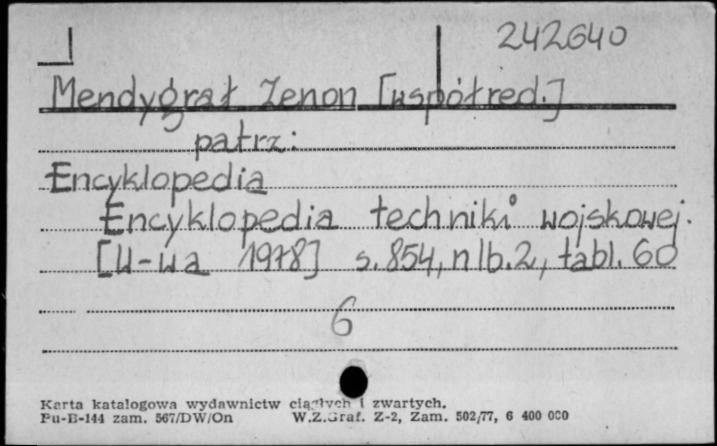 242640
Mendygrał Zenon [współred.]
patrz:
Encyklopedia
Encyklopedia techniki wojskowej.
[W-wa 1978] s.854, nlb.2, tabl. 60
6
Karta katalogowa wydawnictw ciągłych i zwartych.
Pu-B-144 zam. 567/DW/On W.Z.Graf. Z-2, Zam. 502/77, 6 400 000